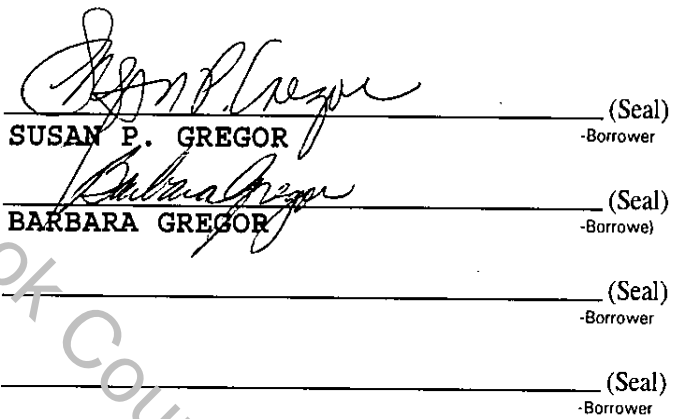 Susan P. Gregor (Seal)
SUSAN P. GREGOR -Borrower
Barbara Gregor (Seal)
BARBARA GREGOR -Borrower
(Seal)
-Borrower
(Seal)
-Borrower
ok Cou